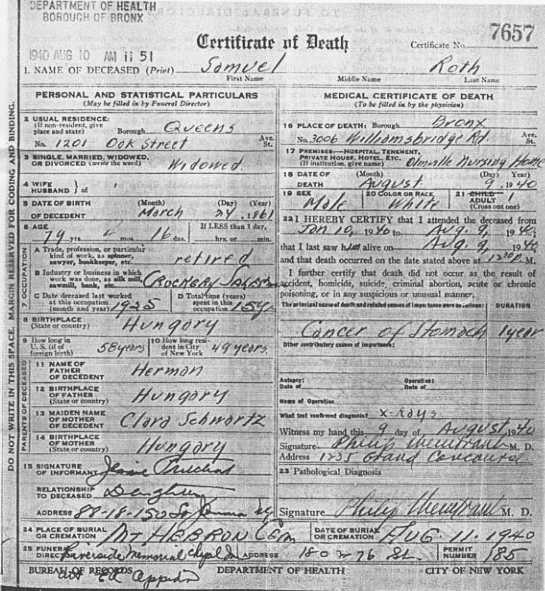 DEPARTMENT OF HEALTH
BOROUGH OF BRONX
7657
1940 AUG 10 AM 11 51
Certificate of Death
Certificate No.
1. NAME OF DECEASED (Print) Samuel Roth
First Name Middle Name Last Name
PERSONAL AND STATISTICAL PARTICULARS
(May be filled in by Funeral Director)
2 USUAL RESIDENCE:
(If non-resident, give place and state) Borough Queens
No. 1201 Oak Street Ave. St.
3 SINGLE, MARRIED, WIDOWED, OR DIVORCED (write the word) Widowed
4 WIFE HUSBAND } of
5 DATE OF BIRTH OF DECEDENT (Month) (Day) (Year)
March 24, 1861
6 AGE If LESS than 1 day,
79 yrs. 4 mos. 16 ds. hrs. or min.
7 OCCUPATION
A Trade, profession, or particular kind of work, as spinner, sawyer, bookkeeper, etc. retired
B Industry or business in which work was done, as silk mill, sawmill, bank, etc. Crockery
C Date deceased last worked at this occupation (month and year) 1925
D Total time (years) spent in this occupation
8 BIRTHPLACE (State or country) Hungary
9 How long in U. S. (if of foreign birth) 58 years
10 How long resident in City of New York 49 years
PARENTS OF DECEASED
11 NAME OF FATHER OF DECEDENT Herman
12 BIRTHPLACE OF FATHER (State or country) Hungary
13 MAIDEN NAME OF MOTHER OF DECEDENT Clara Schwartz
14 BIRTHPLACE OF MOTHER (State or country) Hungary
15 SIGNATURE OF INFORMANT
RELATIONSHIP TO DECEASED Daughter
ADDRESS 88-18-
24 PLACE OF BURIAL OR CREMATION Mt HEBRON Cem
25 FUNERAL DIRECTOR Riverside Memorial Chapel
ADDRESS 180 W 76 St.
MEDICAL CERTIFICATE OF DEATH
(To be filled in by the physician)
16 PLACE OF DEATH: Borough Bronx
No. 3006 Williamsbridge Rd Ave. St.
17 PREMISES—HOSPITAL, TENEMENT, PRIVATE HOUSE, HOTEL, ETC. (If institution, give name) Nursing Home
18 DATE OF DEATH (Month) (Day) (Year)
August 9 1940
19 SEX Male
20 COLOR OR RACE White
21 CHILD ADULT (Cross out one)
22 I HEREBY CERTIFY that I attended the deceased from
Jan 10, 1940 to Aug. 9, 1940;
that I last saw him alive on Aug. 9, 1940
and that death occurred on the date stated above at
I further certify that death did not occur as the result of accident, homicide, suicide, criminal abortion, acute or chronic poisoning, or in any suspicious or unusual manner,
The principal cause of death and related causes of importance were as follows: DURATION
Cancer of Stomach 1 year
Other contributory causes of importance:
Autopsy: Operation:
Date of Date of
Name of Operation
What test confirmed diagnosis? x-rays
Witness my hand this 9 day of August, 1940
Signature Philip M. D.
Address 1235 Grand Concourse
23 Pathological Diagnosis
Signature Philip M. D.
DATE OF BURIAL OR CREMATION AUG. 11. 1940
PERMIT NUMBER 185
BUREAU OF RECORDS DEPARTMENT OF HEALTH CITY OF NEW YORK
DO NOT WRITE IN THIS SPACE. MARGIN RESERVED FOR CODING AND BINDING.